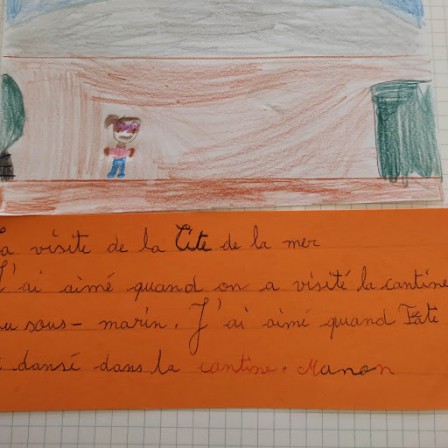 La visite de la Cite de la mer
J'ai aimé quand on a visité la cantine
du sous-marin. J'ai aimé quand
dansé dans la cantine. Manon